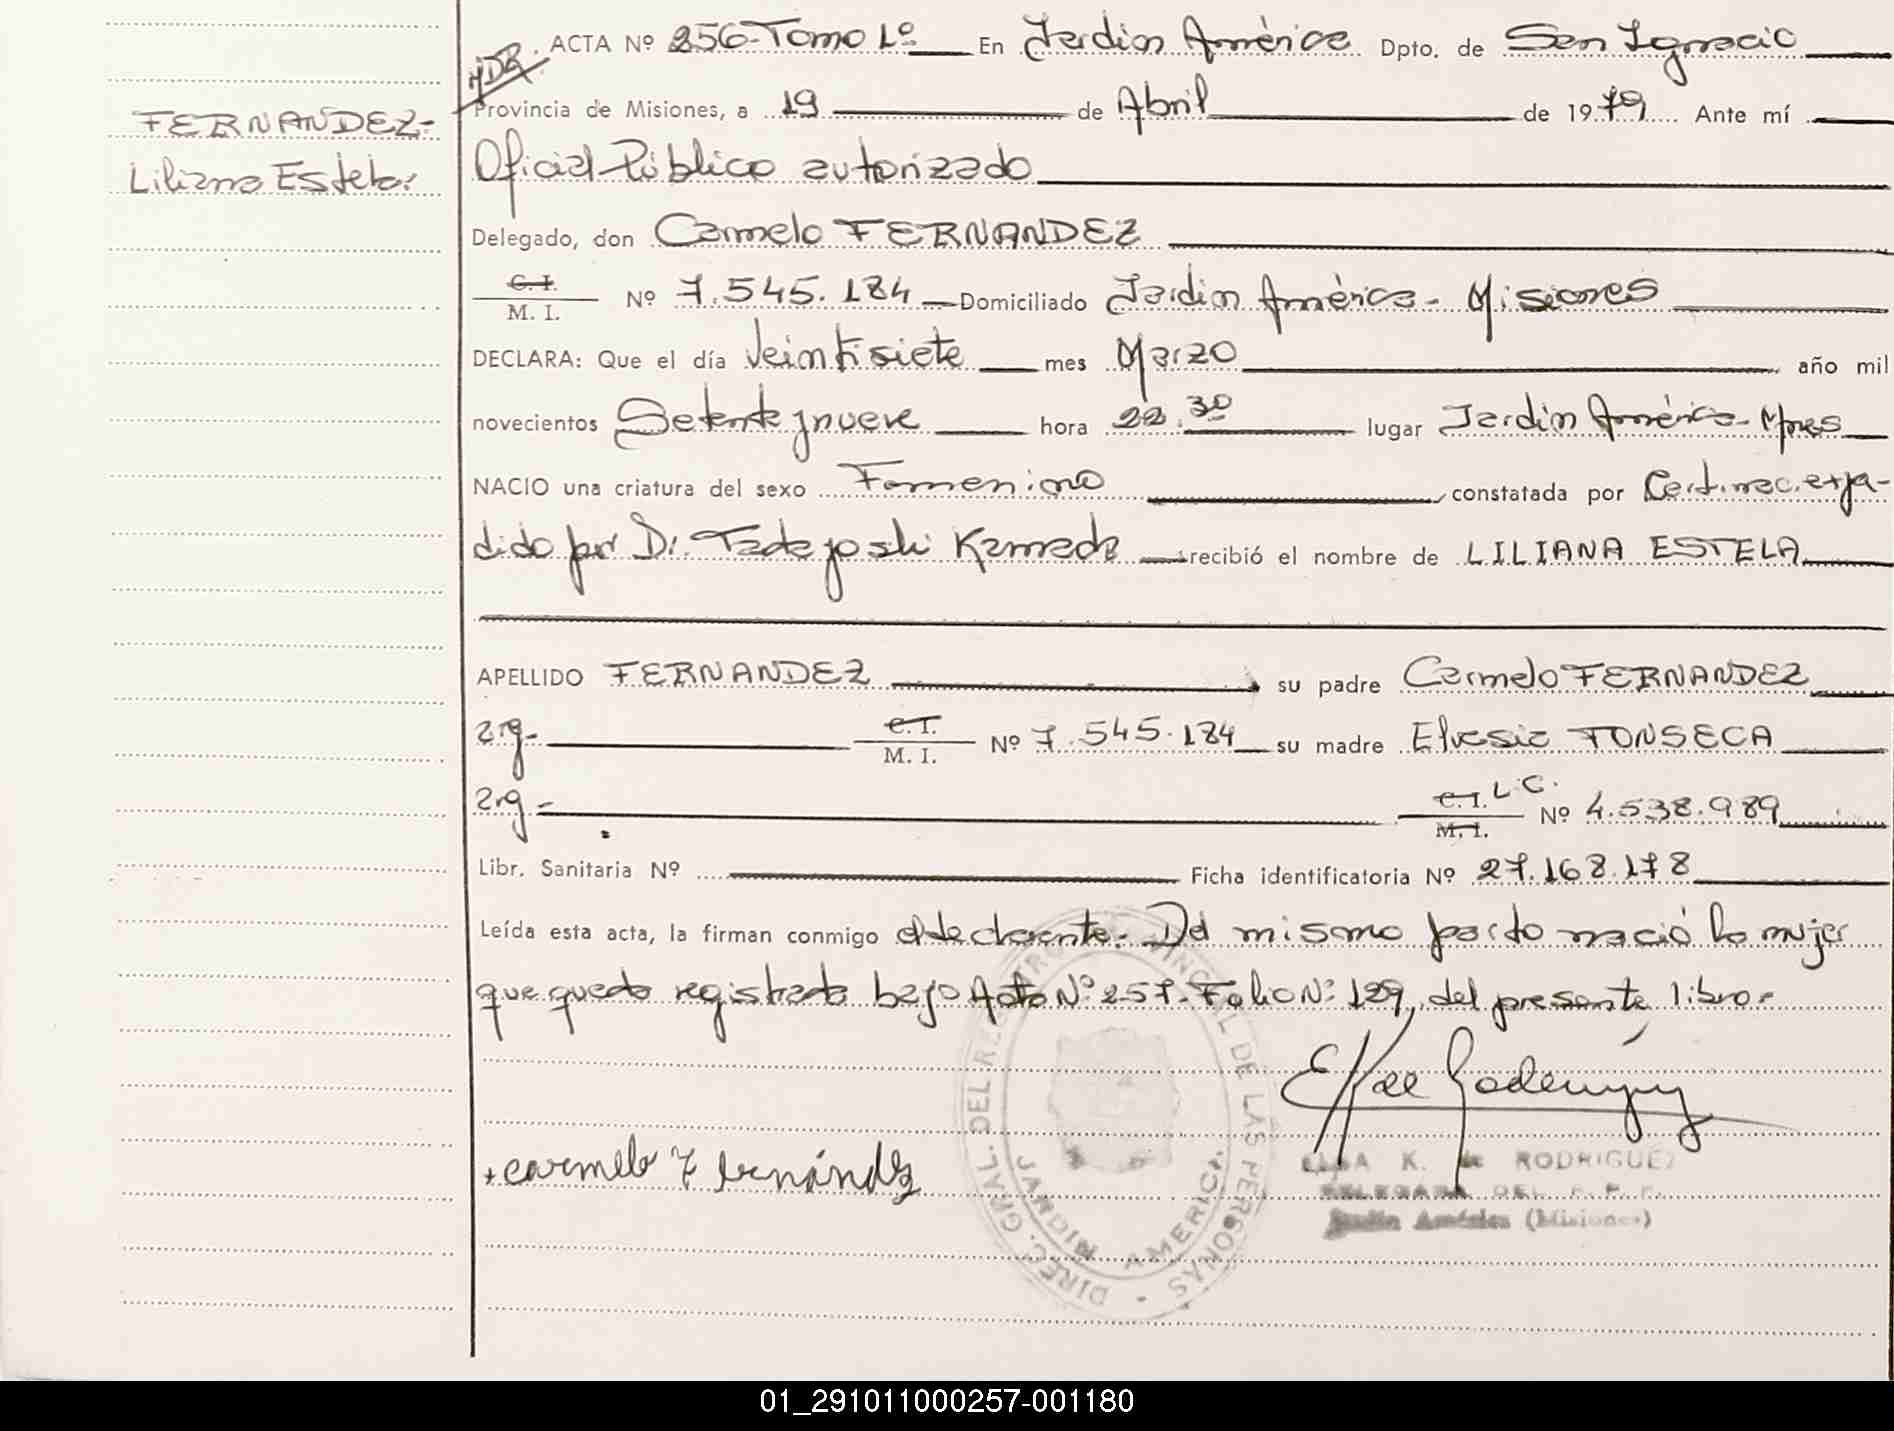 ACTA Nº 256-Tomo 1º En Jardin América Dpto. de San Ignacio
Provincia de Misiones, a 19 de Abril de 1979 Ante mí
FERNANDEZ-
Liliana Estela.
Oficial Público autorizado
Delegado, don Carmelo FERNANDEZ
C. I.
M. I. Nº 7.545.184 Domiciliado Jardin América- Misiones
DECLARA: Que el día Veintisiete mes Marzo año mil
novecientos Setenta y nueve hora 22.30 lugar Jardín América- Mnes
NACIO una criatura del sexo Femenino constatada por Cert.nac.expe-
dido por Dr. Tadayoshi Kameda recibió el nombre de LILIANA ESTELA
APELLIDO FERNANDEZ su padre Carmelo FERNANDEZ
arg- C. I.
M. I. Nº 7.545.184 su madre Elvesia FONSECA
arg- C. I. L.C.
M. I. Nº 4.538.989
Libr. Sanitaria Nº Ficha identificatoria Nº 27.168.178
Leída esta acta, la firman conmigo el declarante. Del mismo parto nació la mujer
que queda registrada bajo Acta Nº 257- Folio Nº 129, del presente libro-
carmelo Fernández
ELSA K. de RODRIGUEZ
DELEGADA DEL R. P. P.
Jardín América (Misiones)
DIREC. GRAL. DEL REGISTRO PROVINCIAL DE LAS PERSONAS
JARDIN AMERICA
01_291011000257-001180